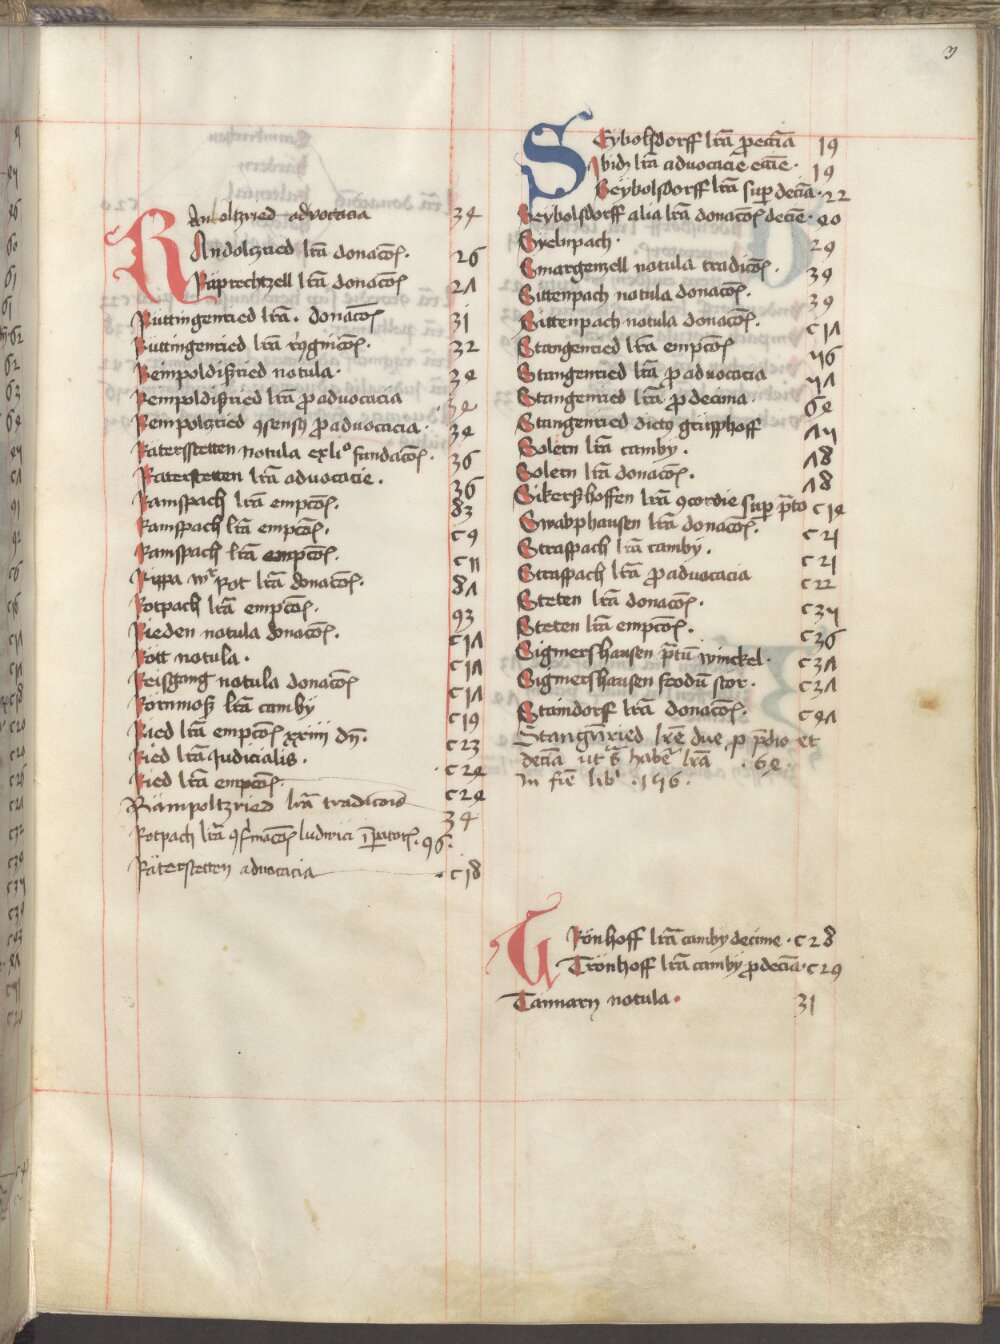 3
Randoltzried advocacia 34
RAndoltzried lrā donacōis. 26
Rüprechtzell lrā donacōis 21
Ruttingenried lrā. donacōis 31
Ruttingenried lrā 32
Reinpoldißried notula. 34
Reinpoldißried lrā pro advocacia 34
Reinpolgried pro advocacia. 34
Ratersstetten notula fundacōis. 36
Raterstetten lrā advocacie. 36
Ramspach lrā empcōis. 83
Ramspach lrā empcōis. c9
Ramspach lrā empcōis. c11
Rippa Rot lrā donacōis. 81
Rotpach lrā empcōis. 93
Rieden notula donacōis. c11
Rott notula. c11
Reisgang notula donacōis c11
Rornmoß lrā camby c19
Ried lrā empcōis xxiiii dn. c23
Ried lrā Judicialis. c24
Ried lrā empcōis. c24
Rämpoltzried lrā tradicōnis 34
Rotpach lrā ludwici 96.
Räterstetten advocacia c18
SEybolsdorff lrā 19
Ibidem lrā advocacie 19
Seybolsdorff lrā super decīa. 22
Seybolsdorff alia lrā donacōis decīe. 40
Syelnpach. 29
Smargenzell notula tradicōis. 39
Sittenpach notula donacōis. 39
Sittenpach notula donacōis. c11
Stangenried lrā empcōis 56
Stangenried lrā pro advocacia 51
Stangenried lrā pro decima. 64
Stangenried dictus grüpphoff 15
Soletn lrā camby. 18
Soletn lrā donacōis. 18
Sikerßhoffen lrā concordie super c14
Swabphausen lrā donacōis. c21
Straspach lrā camby. c21
Straspach lrā pro advocacia c22
Steten lrā donacōis. c35
Steten lrā empcōis. c36
Sigmershausen winckel. c31
Sigmershausen feodū c31
Staindorf lrā donacōis. c41
Stangnried lre due et
decīa ut habet lrā . 64.
in fine libri . 156.
TRönhoff lrā camby decime. c28
Trönhoff lrā camby pro decīa. c29
Tannarn notula. 31